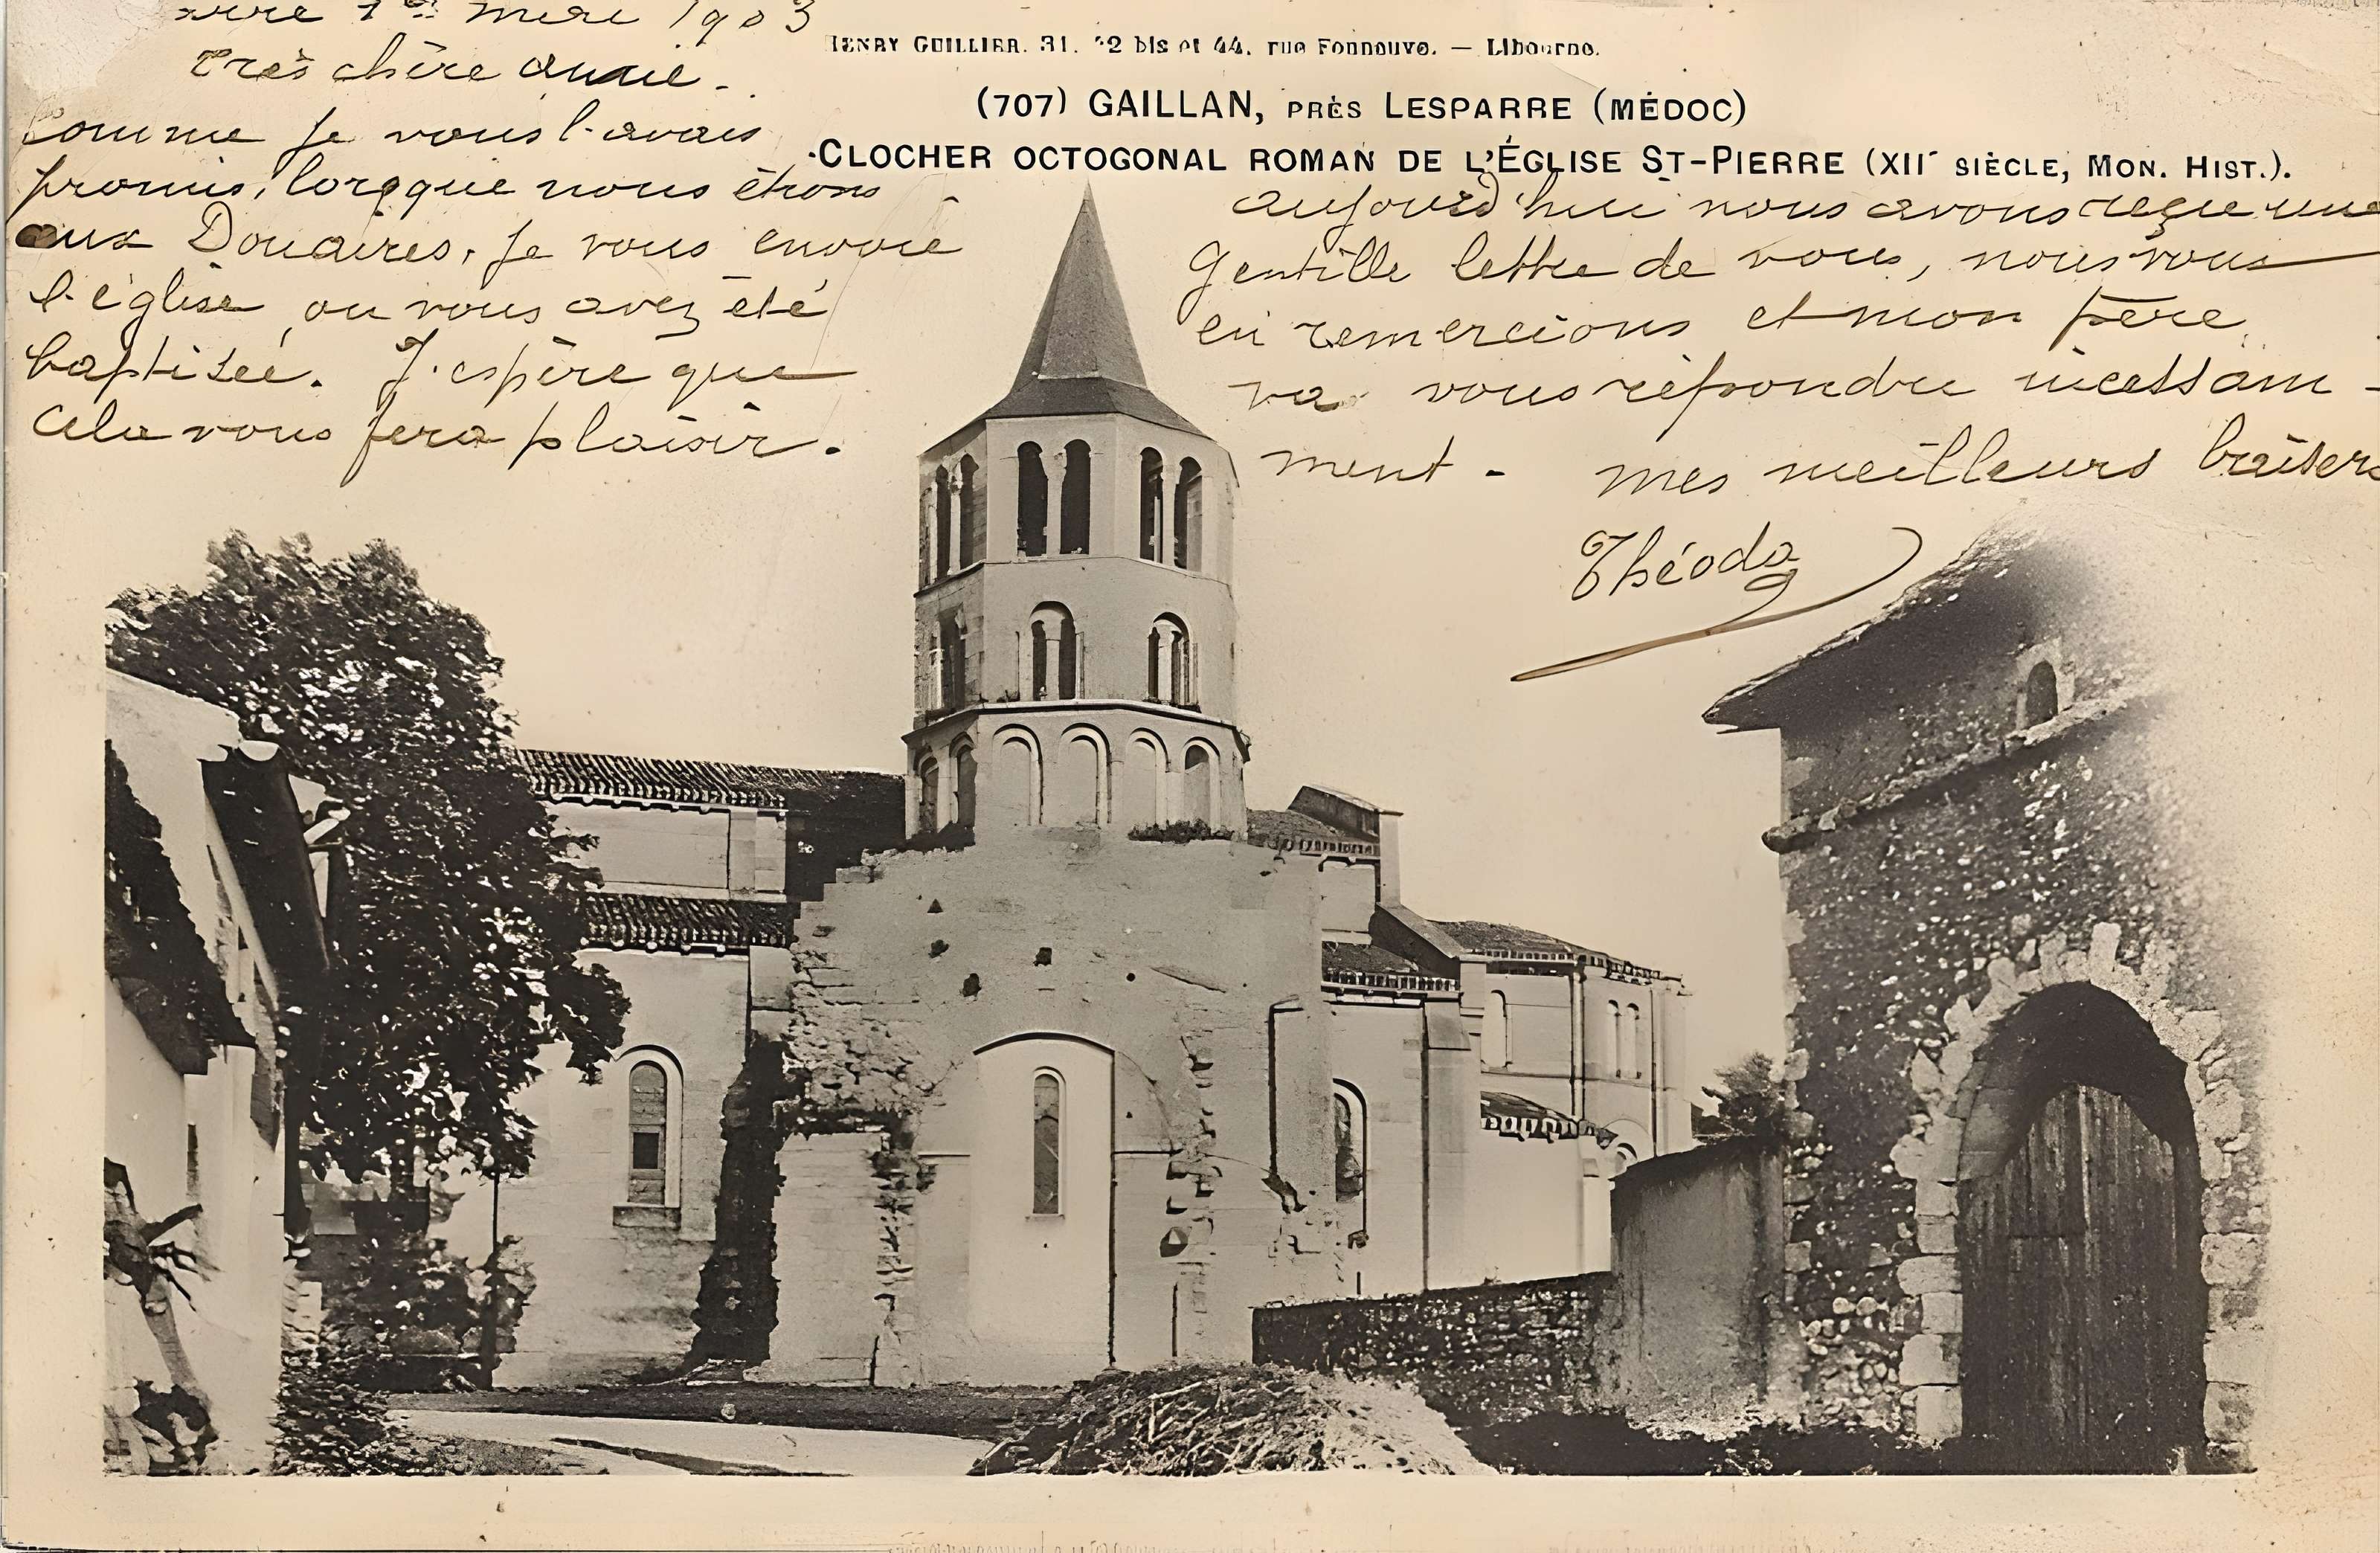 1er mere 1903
très chère amie.
comme je vous l'avais
promis, lorsque nous étions
aux Douaires, je vous envoie
l'église ou vous avez été
baptisée. J'espère que
cela vous fera plaisir.
HENRY GUILLIER. 31. 42 bis et 44. rue Fonneuve. — Libourne.
(707) GAILLAN, PRÈS LESPARRE (MÉDOC)
CLOCHER OCTOGONAL ROMAN DE L'ÉGLISE ST-PIERRE (XIIe SIÈCLE, MON. HIST.).
aujourd'hui nous avons reçue une
Gentille lettre de vous, nous vous
en remercions et mon père
va vous répondre incessam-
ment - mes meilleurs baisers
Théoda